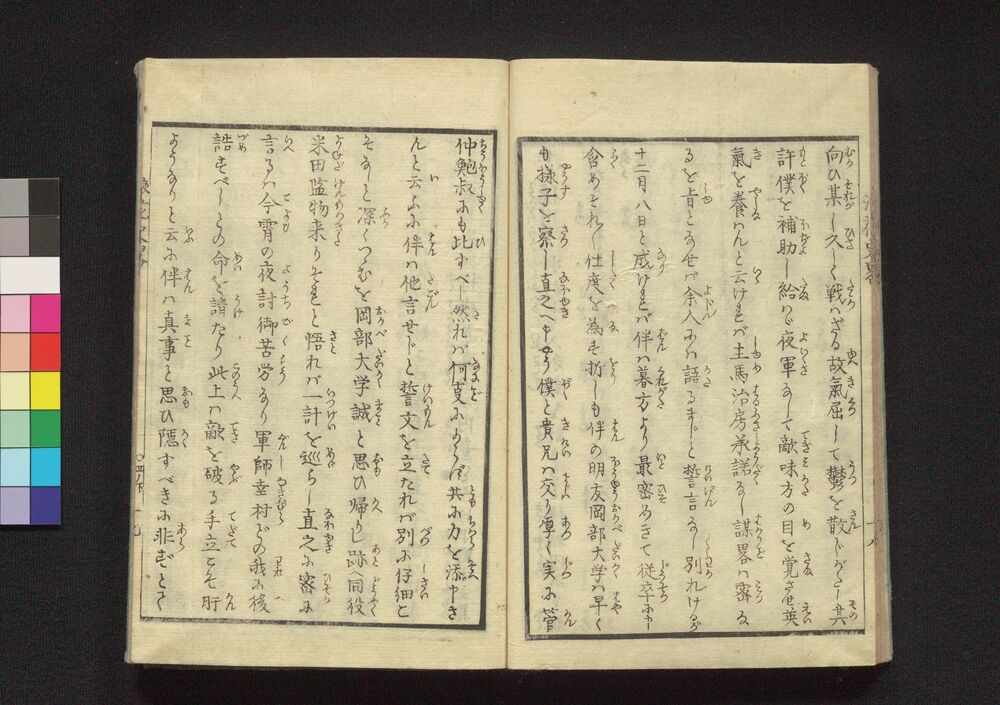 向ひ某し久しく戦はざる故氣屈して鬱を散じがたし其
許僕を補助し給はゞ夜軍なして敵味方の目を覚させ英
氣を養はんと云ければ主馬治房承諾なし謀畧は密な
るを旨となせば余人には語るまじと誓言なし別れけるが
十二月八日と成ければ伴は暮方より最密めきて従卒に申
含めそれ〳〵仕度を為す折しも伴の朋友岡部大学は早く
も様子を察し直之へ申やう僕と貴兄は交り厚く実に管
仲鮑叔にも比すべし然れば何事によらず共に力を添申さ
んと云ふに伴は他言せじと誓文を立たれば別に仔細と
てなしと深くつゝむを岡部大学誠と思ひ帰りし跡へ同役
米田監物来りそれと悟れば一計を巡らし直之に密に
言るは今宵の夜討御苦労なり軍師幸村どの我に後
詰すべしとの命を請たり此上は敵を破る手立こそ肝
ようなりと云に伴は真事と思ひ隠すべきに非ずとて